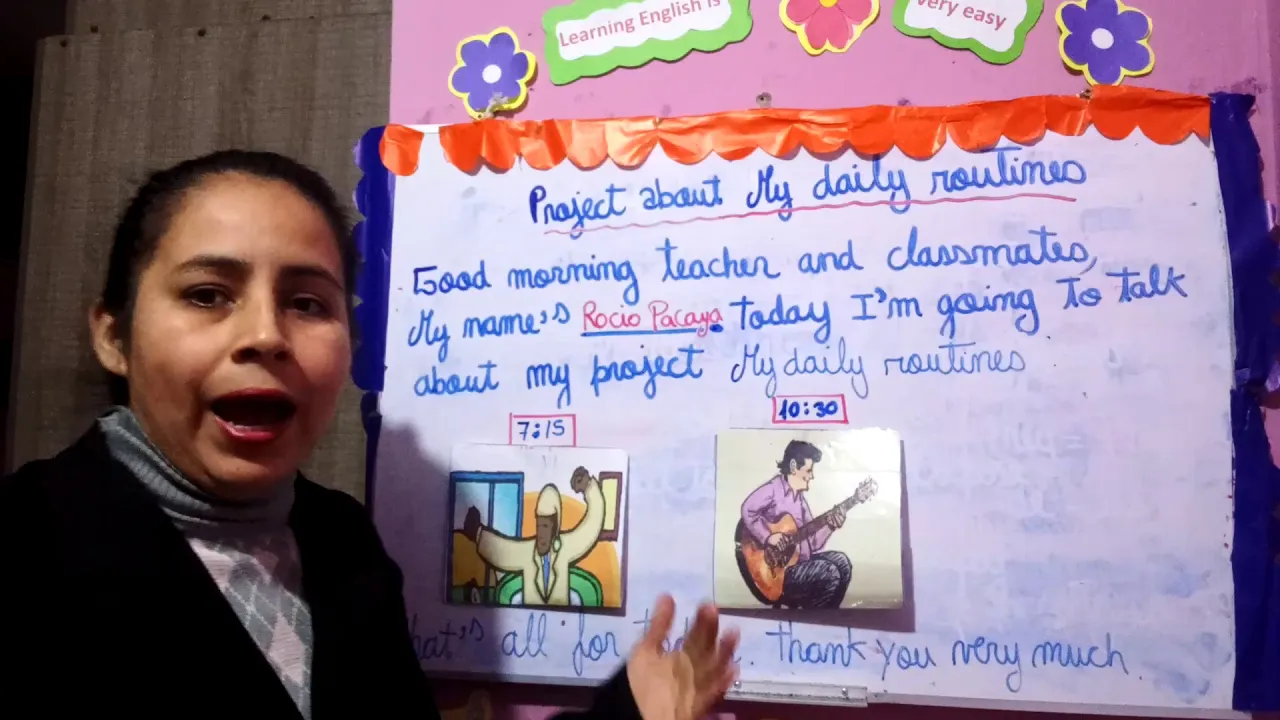 Learning English is
very easy
Project about My daily routines
Good morning teacher and classmates,
My name's Rocio Pacaya. today I'm going to talk
about my project My daily routines
7:15
10:30
hat's all for today. thank you very much